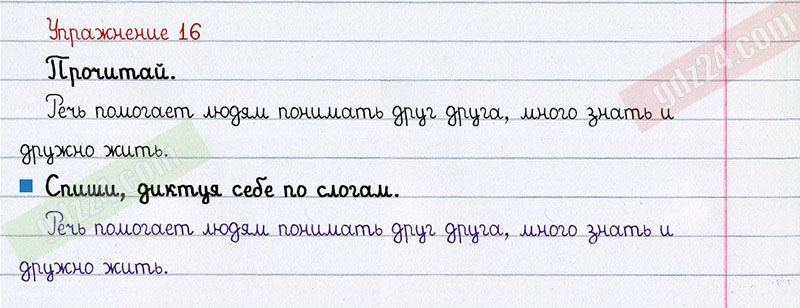 Упражнение 16
Прочитай.
Речь помогает людям понимать друг друга, много знать и
дружно жить.
Спиши, диктуя себе по слогам.
Речь помогает людям понимать друг друга, много знать и
дружно жить.
gdz24.com
gdz24.com